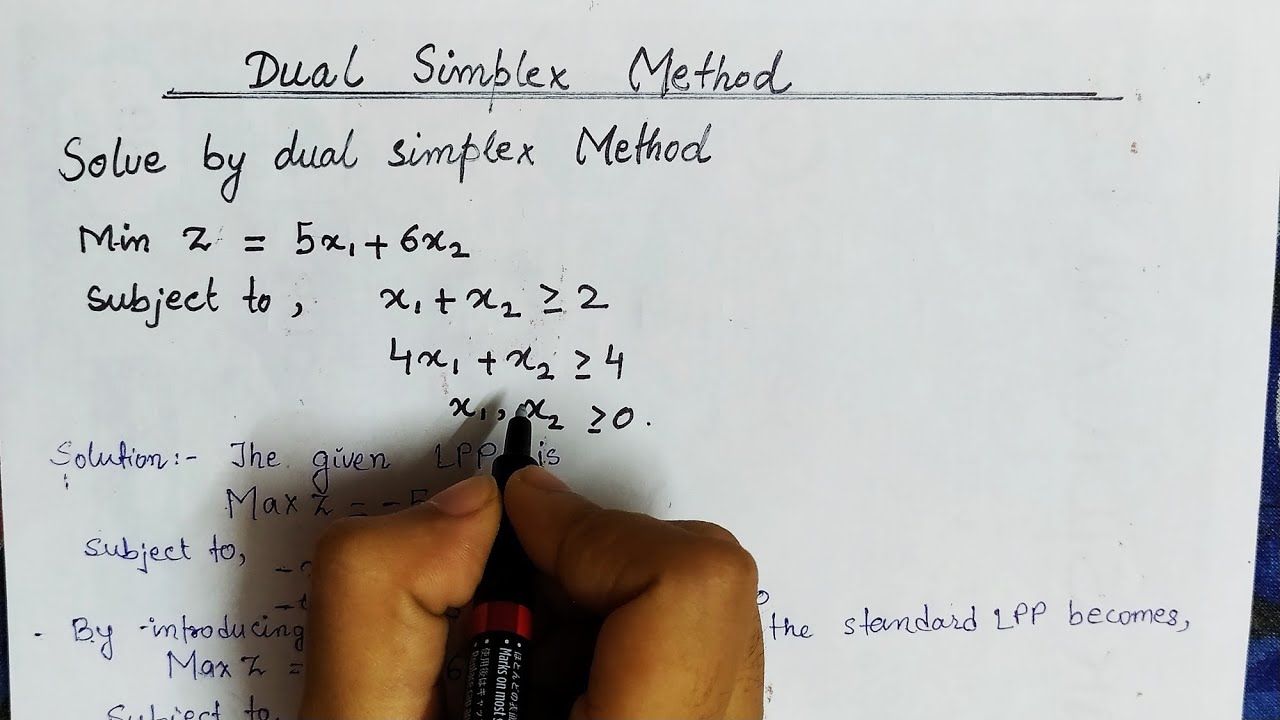 Dual Simplex Method
Solve by dual simplex Method
Min Z = 5x₁ + 6x₂
subject to, x₁ + x₂ ≥ 2
4x₁ + x₂ ≥ 4
x₁, x₂ ≥ 0.
Solution:- The given LPP is
Max Z = -5
subject to,
By introducing the standard LPP becomes,
Max Z = 6
Subject to
ほとんどの
Marks on most
使用後はキャッ